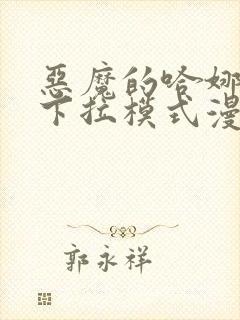 惡魔的哈娜
下拉模式漫
郭永祥